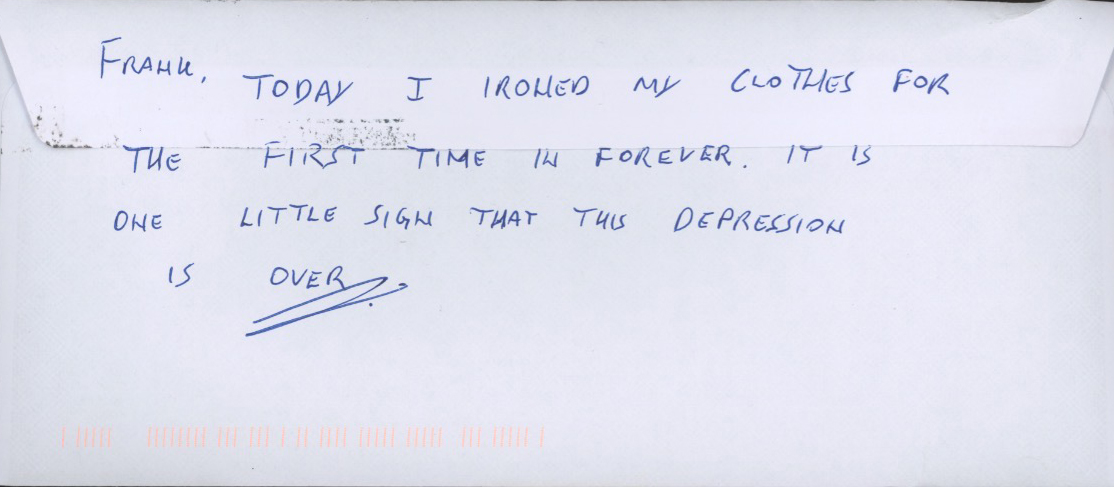 FRANK, TODAY I IRONED MY CLOTHES FOR
THE FIRST TIME IN FOREVER. IT IS
ONE LITTLE SIGN THAT THIS DEPRESSION
IS OVER.